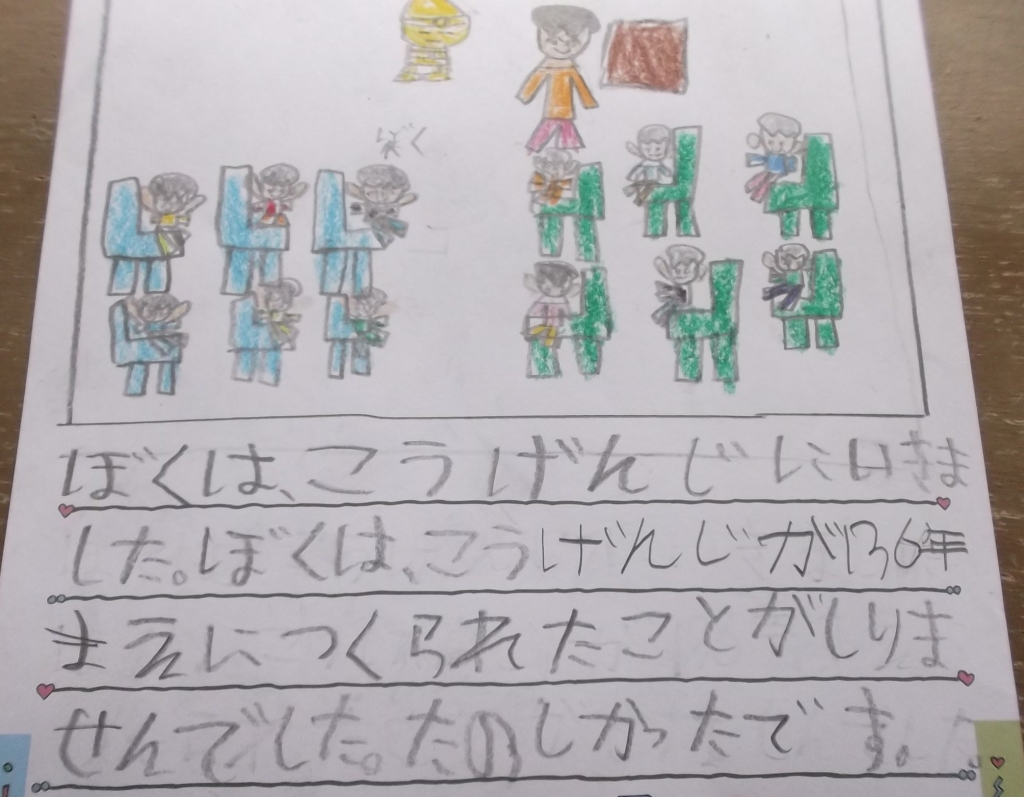 ぼく
ぼくは、こうげんじにいきま
した。ぼくは、こうげんじが136年
まえにつくられたことがしりま
せんでした。たのしかったです。